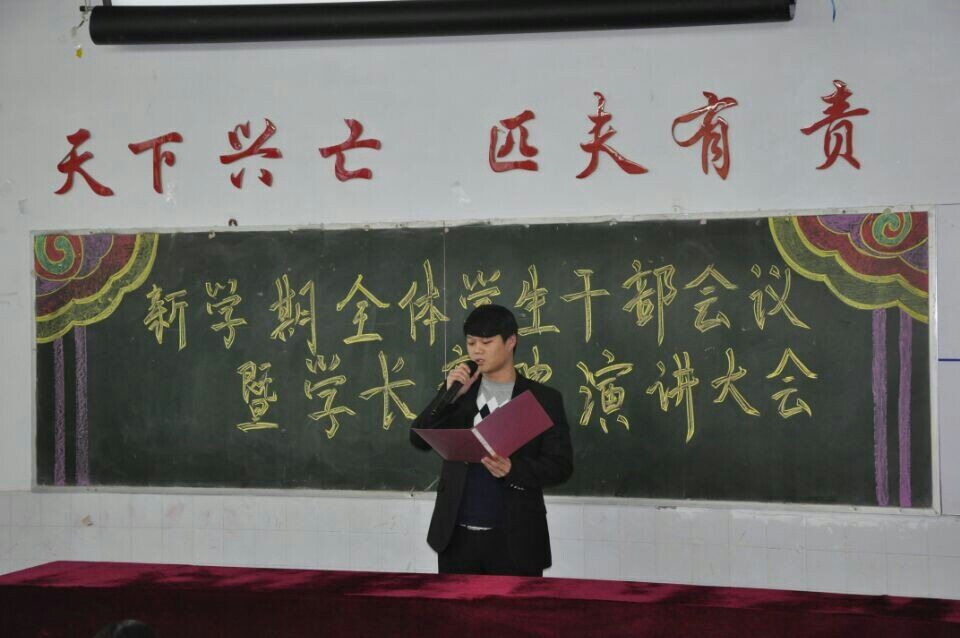 天下兴亡 匹夫有责
新学期全体学生干部会议
暨学长演讲大会